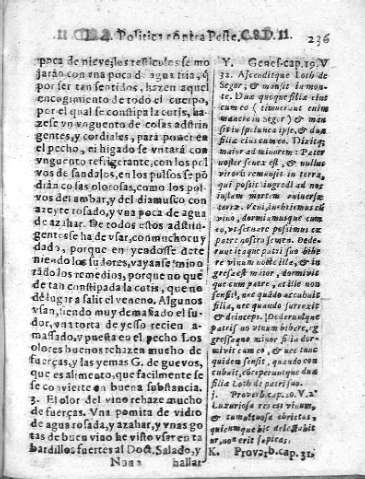 Politica cõtra Peste. CAP. II. 236
poca de nieve, los testiculos se mo
jarán con vna poca de agua fria, q̃
por ser tan sentidos, hazen aquel
encogimiento de todo el cuerpo,
por el qual se constipa la cotis, ha
zese vn vnguento de cosas adstrin
gentes, y cordiales, para poner en
el pecho, el higado se vntará con
vnguento refrigerante, con los pol
vos de sandalos, en los pulsos se põ
drán cosas olorosas, como los pol
vos del ambar, y del diamusco con
azeyte rosado, y vna poca de agua
de azahar. De todos estos adstrin
gentes se ha de vsar, con mucho cuy
dado, porque en
niendo los sudores, vaya
rado los remedios, porque no que
de tan constipada la cotis, que no
dè lugar a salir el veneno. Algunos
vsan, siendo muy demasiado el su
dor, vna torta de yesso recien a-
massado, y puesta en el pecho Los
olores buenos rehazen mucho de
fuerças, y las yemas G. de guevos,
que es alimento, que facilmente se
se convierte en buena substancia.
3. El olor del vino rehaze mucho
de fuerças. Vna pomita de vidro
de agua rosada, y azahar, y vnas go
tas de buen vino he visto vser en ta
bardillos fuertes al Doct. Salado, y
Nnn 2 hallar
Y. Genes. cap. 19. V
32. Ascenditque Loth de
Segor, & mansit in mon-
te. Duæ quoque filiæ eius
cum eo ( timuerat enim
manere in Segor) & man
sit in spelunca ipse, & duæ
filiæ eius cum eo. Dixitq;
maior ad minorem: Pater
noster senex est, & nullus
virorũ remansit in terra,
qui possit ingredi ad nos
iuxta morem vniversæ
terræ. Veni, inebriemus eũ
vino, dormiamusque cum
eo, vt servare possimus ex
patre nostro semen. Dede-
runt itaque patri suo bibe
re vinum nocte illa, & in
gressa est maior, dormivit
que cum patre, at ille non
sensit, nec quãdo accubuit
filia, nec quando surrexit
& deinceps. Dederunt que
patri suo vinum bibere, in
gressaque minor filia dor
mivit cum eo, & nec tunc
quidem sensit, quando con
cubuit, cöceperunt que duæ
filiæ Loth de patri suo.
j. Proverb. cap. 20. V. 2
Luxuriosa res est vinum,
& tumultuosa ebrietas,
quicumque his delectabit
ur, non erit sapiens.
K. Proverb. cap. 31.